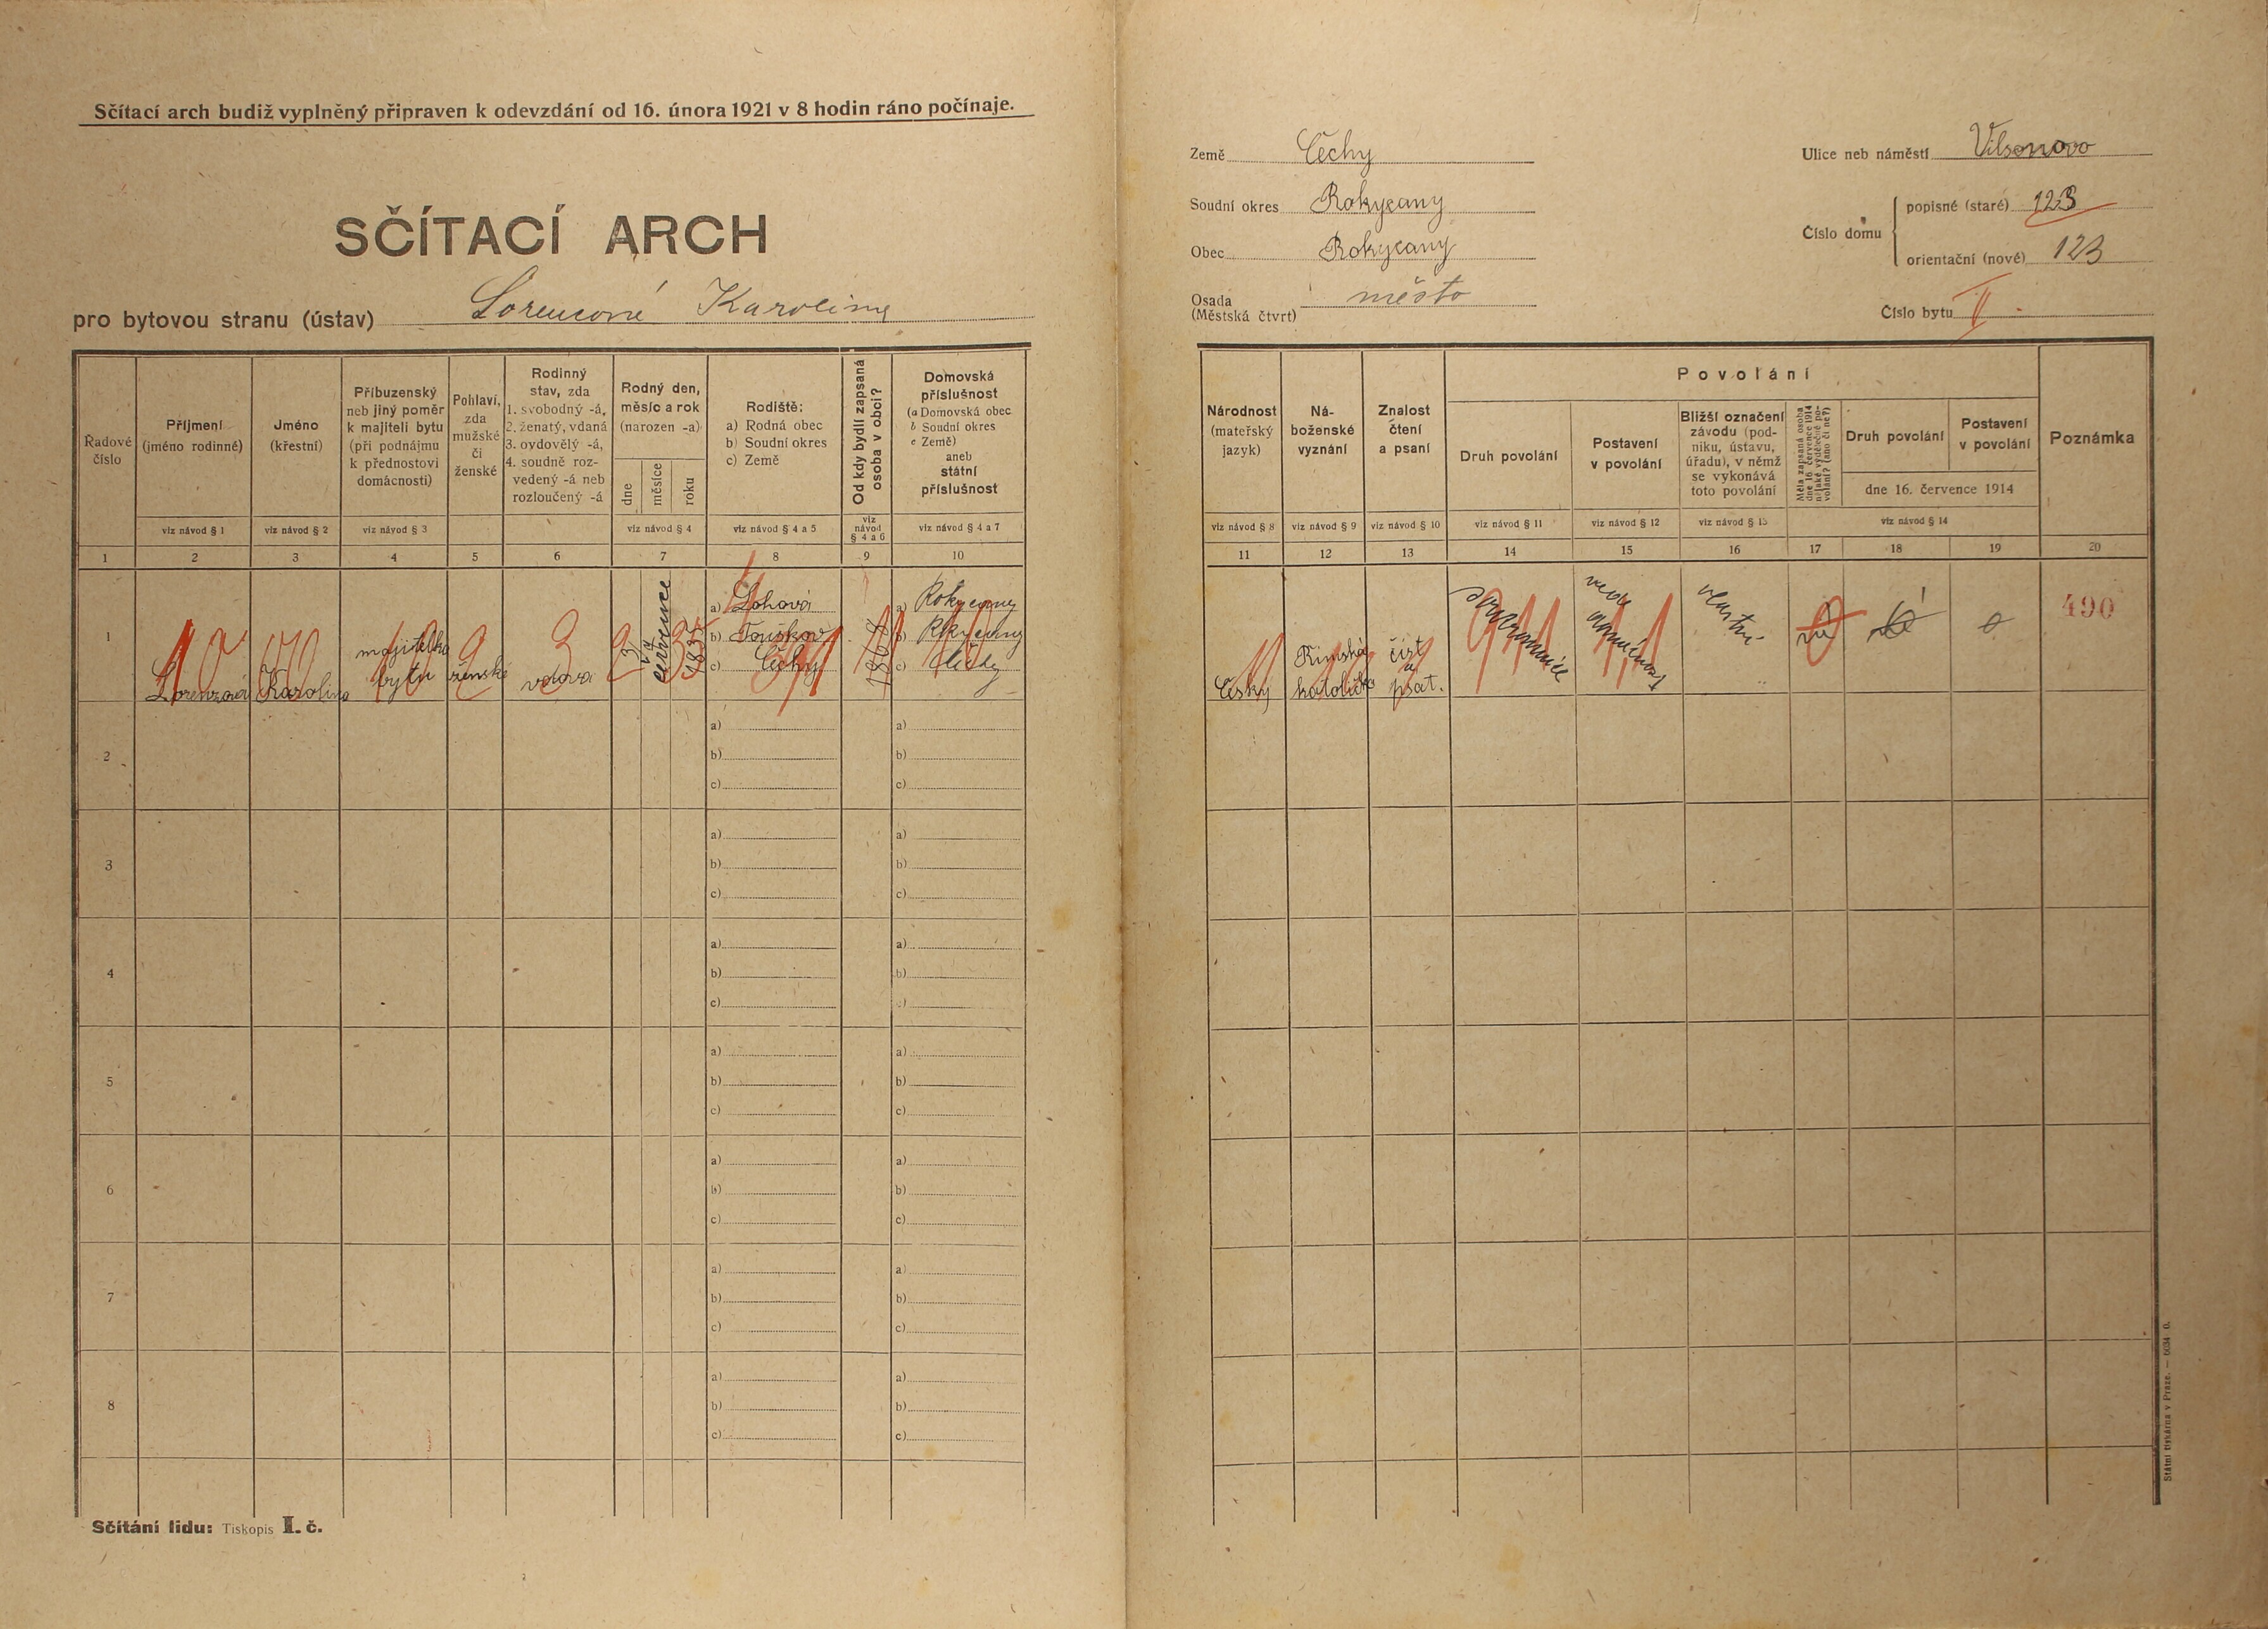 Sčítací arch budiž vyplněný připraven k odevzdání od 16. února 1921 v 8 hodin ráno počínaje.
SČÍTACÍ ARCH
pro bytovou stranu (ústav) Lorencové Karoliny
Země Čechy
Soudní okres Rokycany
Obec Rokycany
Osada město
(Městská čtvrt)
Ulice neb náměstí Vilsonovo
Číslo domu
popisné (staré) 123
orientační (nové) 123
Číslo bytu II.
Řadové číslo
Příjmení (jméno rodinné)
Jméno (křestní)
Příbuzenský neb jiný poměr k majiteli bytu (při podnájmu k přednostovi domácnosti)
Pohlaví, zda mužské či ženské
Rodinný stav, zda
1. svobodný -á,
2. ženatý, vdaná
3. ovdovělý -á,
4. soudně rozvedený -á neb rozloučený -á
Rodný den, měsíc a rok (narozen -a)
dne
měsíce
roku
Rodiště:
a) Rodná obec
b) Soudní okres
c) Země
Od kdy bydlí zapsaná osoba v obci?
Domovská příslušnost
(a Domovská obec
b Soudní okres
c Země)
aneb
státní příslušnost
viz návod § 1
viz návod § 2
viz návod § 3
viz návod § 4
viz návod § 4 a 5
viz návod § 4 a 6
viz návod § 4 a 7
1 2 3 4 5 6 7 8 9 10
Národnost (mateřský jazyk)
Náboženské vyznání
Znalost čtení a psaní
Povolání
Druh povolání
Postavení v povolání
Bližší označení závodu (podniku, ústavu, úřadu), v němž se vykonává toto povolání
Měla zapsaná osoba dne 16. července 1914 nějaké výdělečné povolání? (ano či ne?)
Druh povolání
Postavení v povolání
dne 16. července 1914
Poznámka
viz návod § 8
viz návod § 9
viz návod § 10
viz návod § 11
viz návod § 12
viz návod § 13
viz návod § 14
11 12 13 14 15 16 17 18 19 20
1
Karolina
majitelka bytu
ženské
vdova
3
července
1835
a) Lohová
b) Touškov
c) Čechy
a) Rokycany
b) Rokycany
c) Čechy
český
Římsko katolické
číst a psát.
soukromnice
vlastní
490
2
a)
b)
c)
a)
b)
c)
3
a)
b)
c)
a)
b)
c)
4
a)
b)
c)
a)
b)
c)
5
a)
b)
c)
a)
b)
c)
6
a)
b)
c)
a)
b)
c)
7
a)
b)
c)
a)
b)
c)
8
a)
b)
c)
a)
b)
c)
Sčítání lidu: Tiskopis I. č.
Státní tiskárna v Praze.